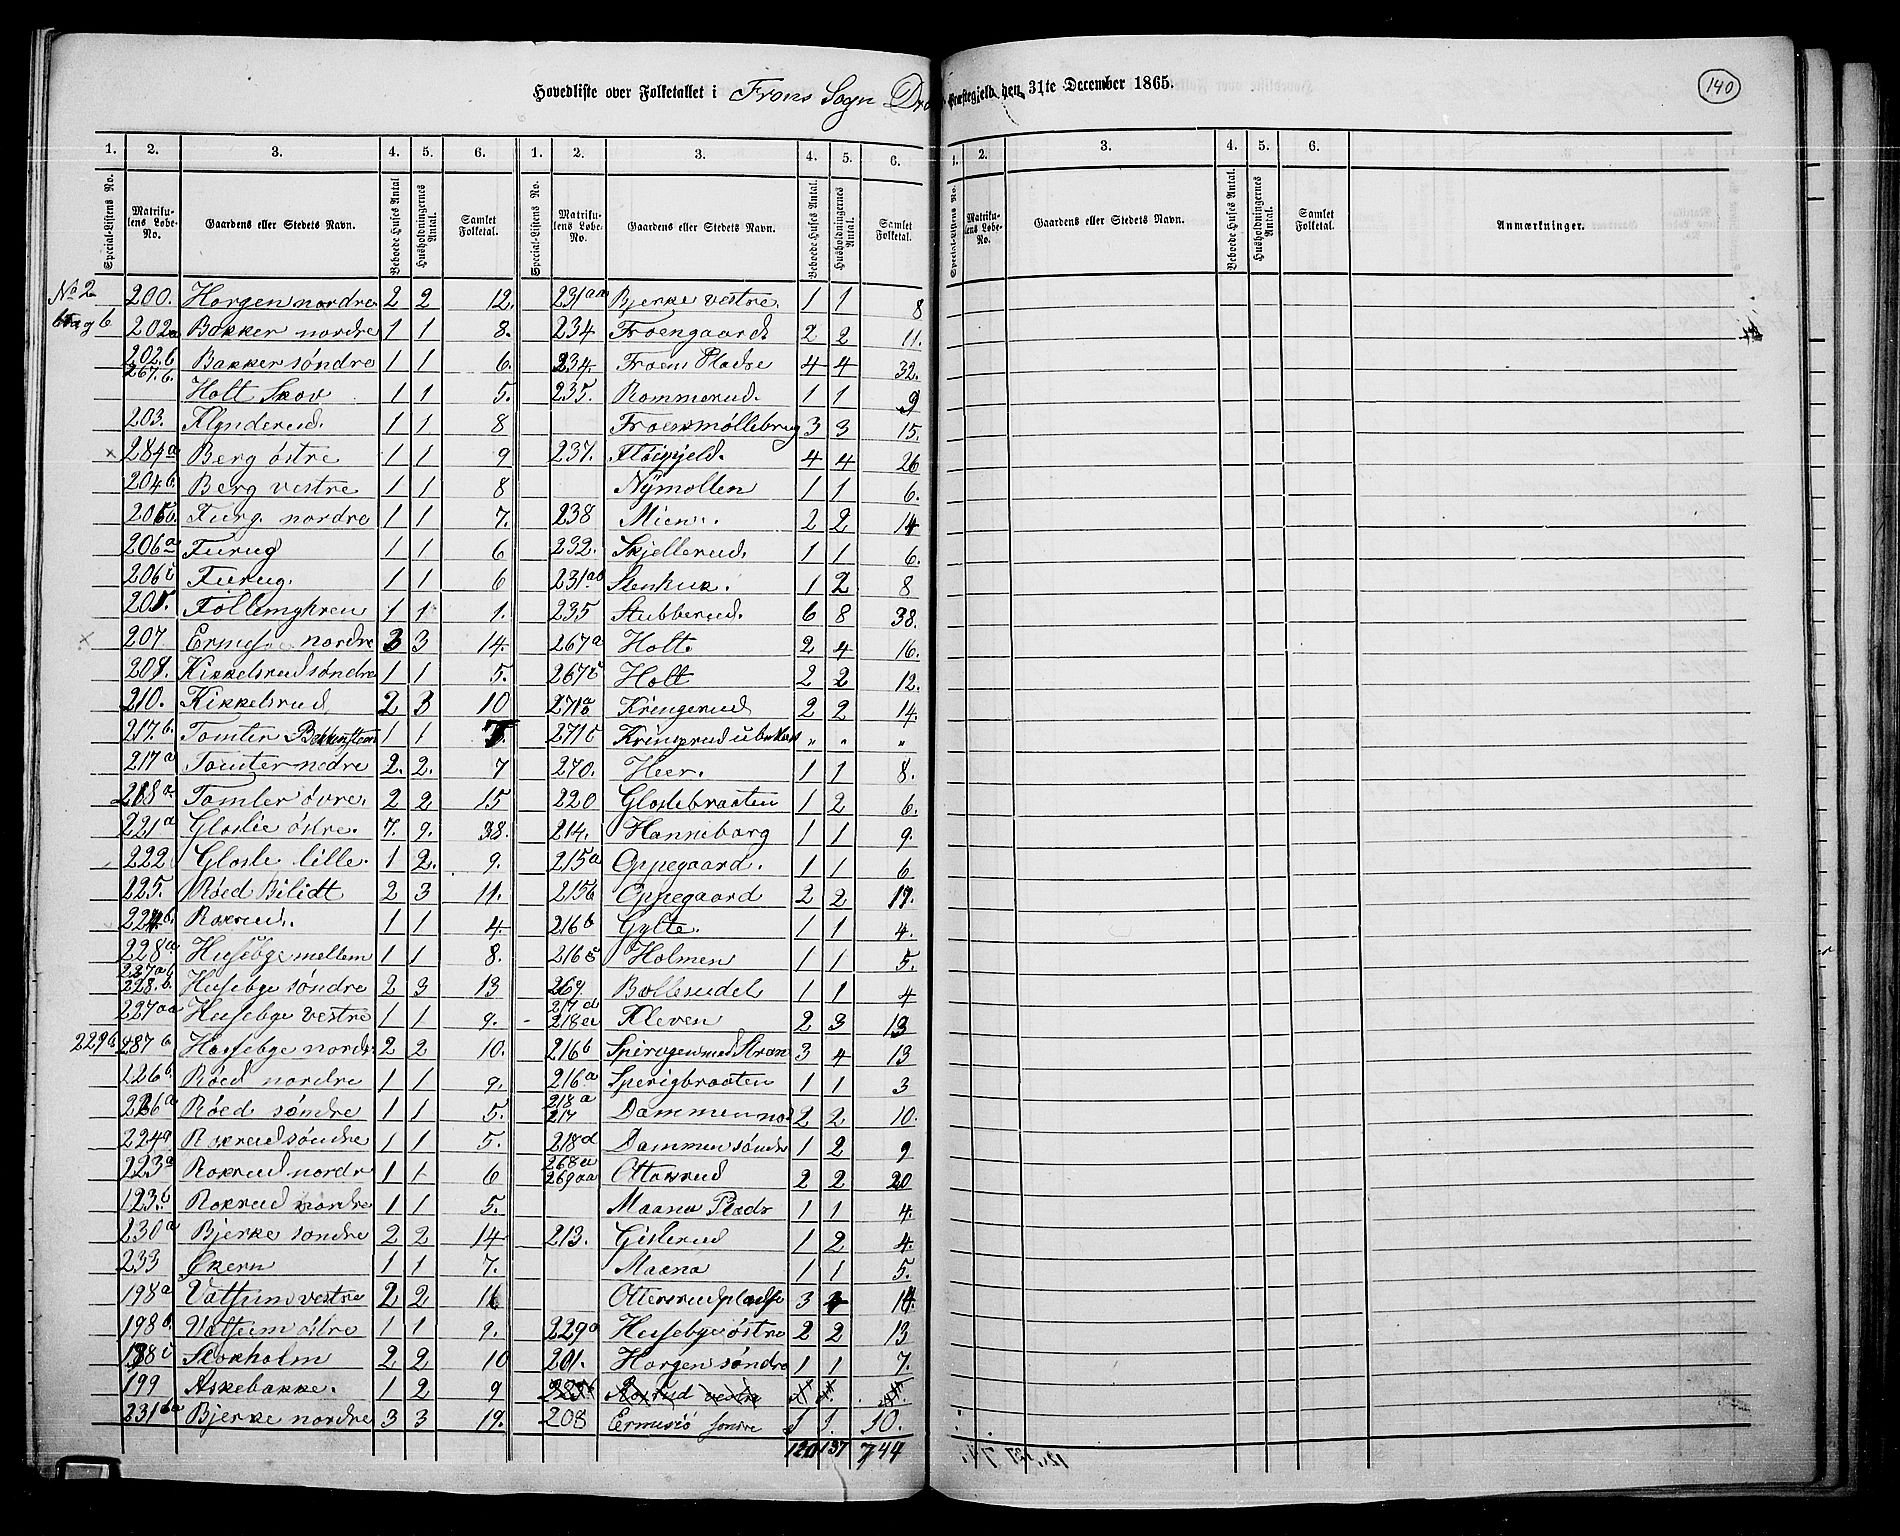 Hovedliste over Folketallet i Frons Sogn Præstegjeld, den 31te December 1865.
140
1. 2. 3. 4. 5. 6. 1. 2. 3. 4. 5. 6. 1. 2. 3. 4. 5. 6.
Special-Listens No. Matrikulens Løbe-No. Gaardens eller Stedets Navn. Beboede Huses Antal Husholdningernes Antal. Samlet Folketal. Special-Listens No. Matrikulens Løbe-No. Gaardens eller Stedets Navn. Beboede Huses Antal. Husholdningernes Antal. Samlet Folketal. Special-Listens No. Matrikulens Løbe-No. Gaardens eller Stedets Navn. Beboede Huses Antal. Husholdningernes Antal. Samlet Folketal. Anmærkninger.
No 2 200. Horgen nordre 2 2 12. 231aa Bjerke vestre. 1 1 8
202a Bakker nordre 1 1 8. 234 Froengaard 2 2 11.
202b 267.b. Bakker søndre 1 1 6. 234. Froens Pladse 4 4 32.
Holt Skov 1 1 5. 235. Rommerud. 1 1 9
203. Klynderud. 1 1 8 Froensmøllebrug 3 3 15.
204a Berg østre 1 1 9 237. Fløisjeld. 4 4 26
204b. Berg vestre 1 1 8 Nymollen 1 1 6.
205b. Furg. nordre 1 1 7. 238 2 2 14
206a Furug 1 1 6 232. Skjellerud. 1 1 6.
206c Furug. 1 1 6 231ab Stenhuk. 1 2 8
205. Follemyhren 1 1 1. 235 Stubberud. 6 8 38.
207 nordre 3 3 14. 267a Holt. 2 4 16.
Kikkelsrud søndre 1 1 5. 267c Holt 2 2 12.
210. Kikkelsrud 2 3 10 271a Kringerud 2 2 14.
217.b. Tomter 1 1 7. 271c Kringerud ubeboet " " "
217a Tomter nedre 2. 2. 7 270. Heer. 1 1 8.
218a. Tomter øvre. 2 2 15 220 Gloslebraaten 1 2 6.
221a Gloslie østre. 7. 9. 38. 214. Hanneborg 1 1 9.
222 Glosle lille. 1 2. 9. 215a Oppegaard. 1 1 6
225. Røed Bilidt 2 3 11. 215b Oppegaard 2 2 17.
224b. Rokrud. 1 1 4. 216b Gylte. 1 1 4.
228a Husebye mellem 1 1 8. 216c Holmen 1 1 5.
227ab 228.b. Husebye søndre 2 3 13 269. 1 1 4
227aa Husebye vestre 1 1 9. 217d 218e Kleven 2 3 13
229b 287b Husebye nordr. 2 2 10. 216b 3 4 13
126b. Røed nordre 1 1 9. 216a Sperigbraaten 1 1 3
226a Røed søndre 1 1 5. 218a 217 Dammen nor 2 2 10.
224a Rokrud søndre 1 1 5. 218d Dammen søndre 1 2 9
223a Rokrud nordr 1 1 6 268a 269aa Ottersrud 2 2 20
123b. Rokrud nordre 1 1 5. Maana Plads 1 1 4.
230a Bjerke søndre 2 2 14 213. Gislerud 1 2 4.
233 Økern 1 1 7. Maana 1 1 5.
198a Vattum vestre 2 2 11 Ottersrudpladse 3 4 14.
198b. Vattum østre 1 1 9. 229a Husebye østre 2 2 13
198c Stokholm 2 2 10 201. Horgen søndre 1 1 7.
199 Askebakke. 1 2 9 Rokrud vestre
231ba Bjerke nordre 3 3 19. 208 Ermesiø søndre 1 1. 10.
120 137 744